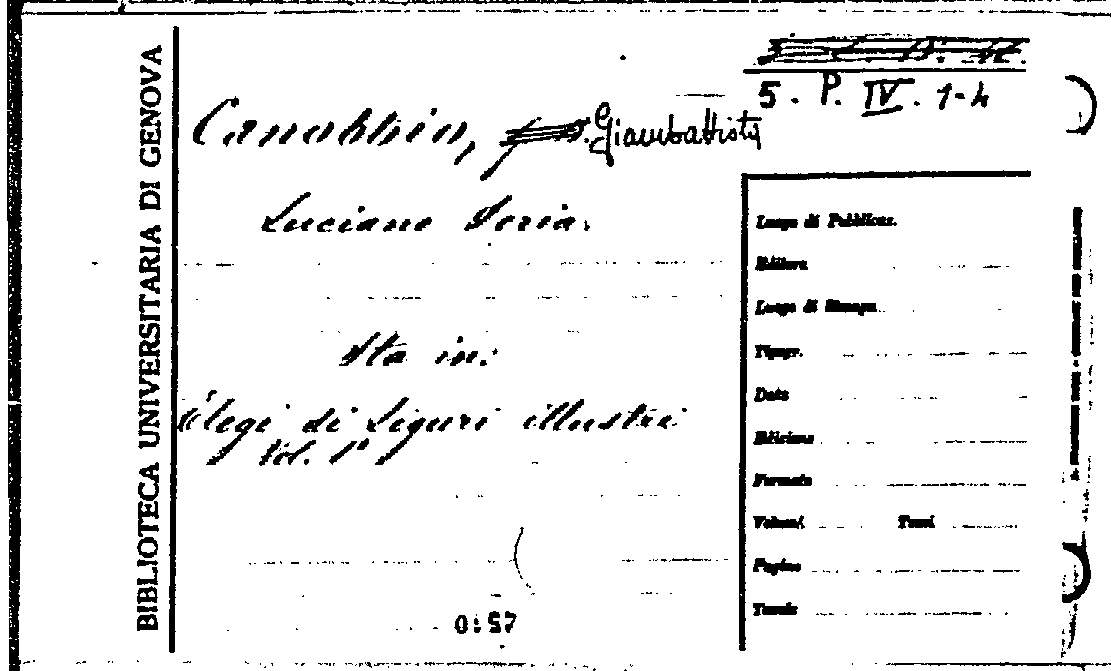 BIBLIOTECA UNIVERSITARIA DI GENOVA
5. P. IV. 1-4
Canobbio, Giambattista
Luciano Doria.
Sta in:
Elogi di Liguri illustri
Vol. I°
Luogo di Pubblicaz.
Editore
Luogo di Stampa
Tipogr.
Data
Edizione
Formato
Volumi Tomi
Pagine
Tavole